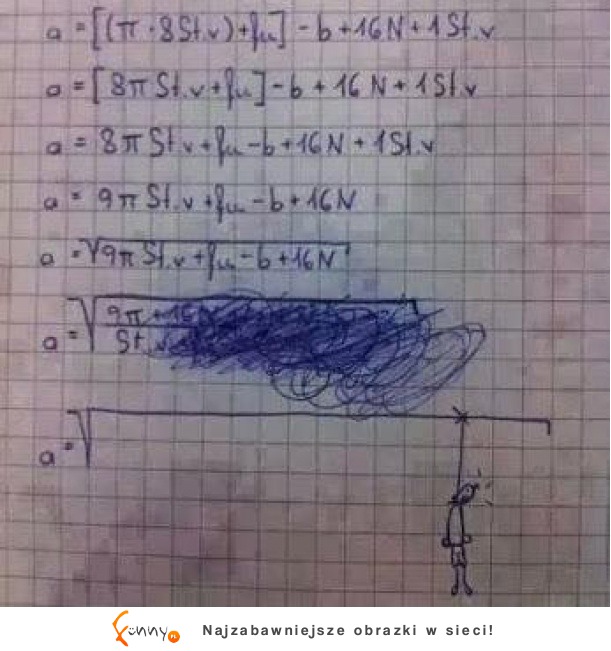 a = [(π · 8St.v) + fu] - b + 16N + 1St.v
a = [8π St.v + fu] - b + 16N + 1St.v
a = 8π St.v + fu - b + 16N + 1St.v
a = 9π St.v + fu - b + 16N
a = √9π St.v + fu - b + 16N
a = √9π + 16N
St.v
a = √
funny.pl
Najzabawniejsze obrazki w sieci!